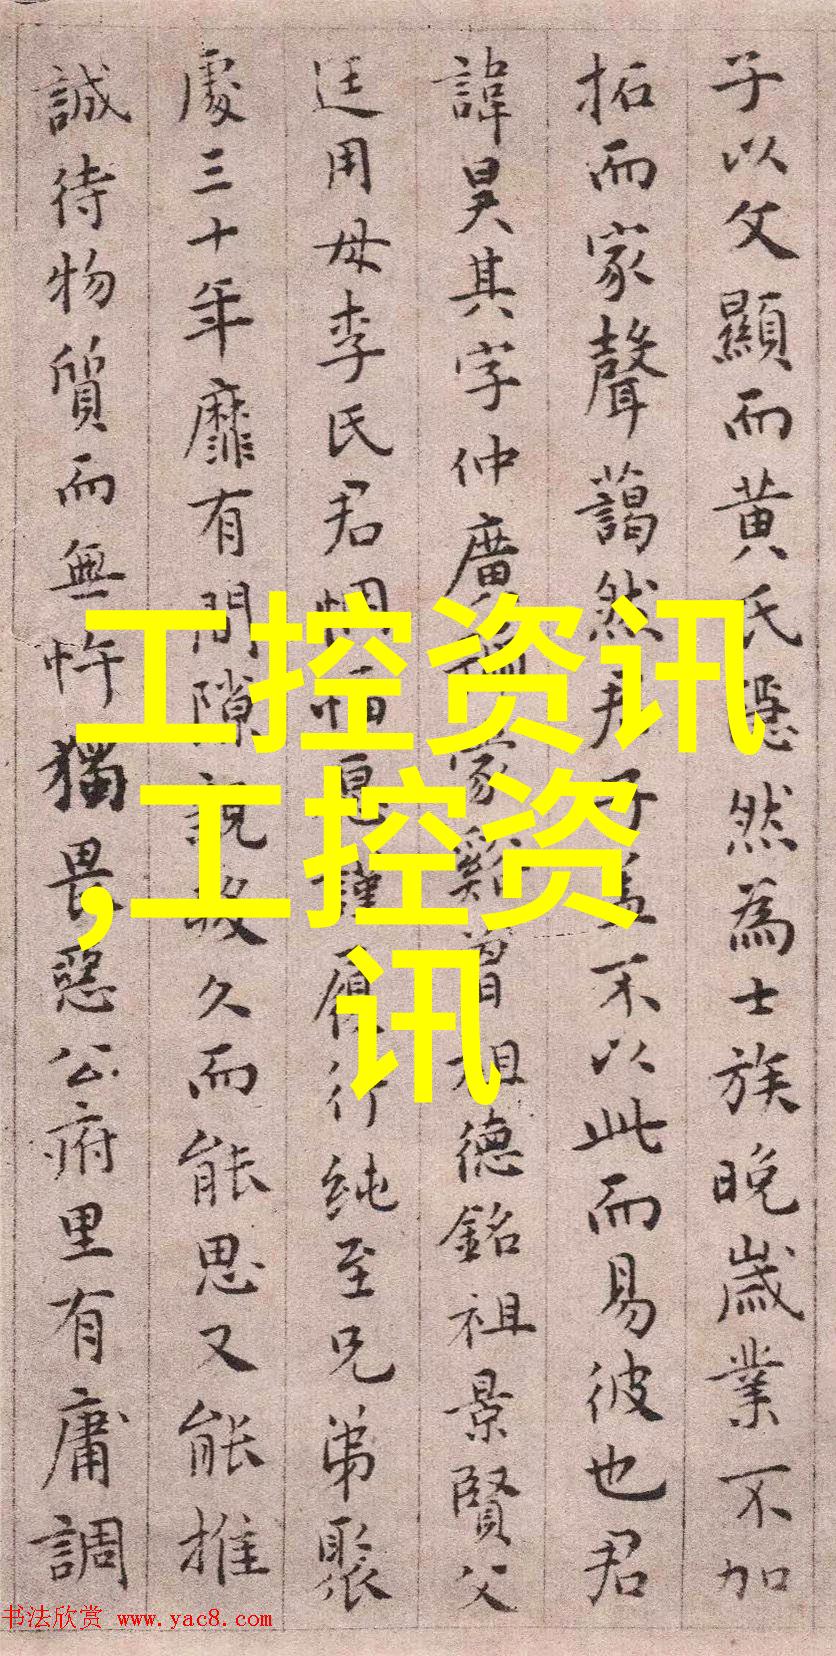 子以父顯而黄氏隱然為士族晚歲業不加
拓而家聲藹然君子蓋不以此而易彼也君
諱昊其字仲廣 家 曾祖德銘祖景賢父
廷用母李氏君 謹履行純至兄弟聚
處三十年靡有間隙 久而能思又能推
誠待物質而無忤獨畏惡公府里有庸調
工控资讯
,工控资
讯
书法欣赏 www.yac8.com